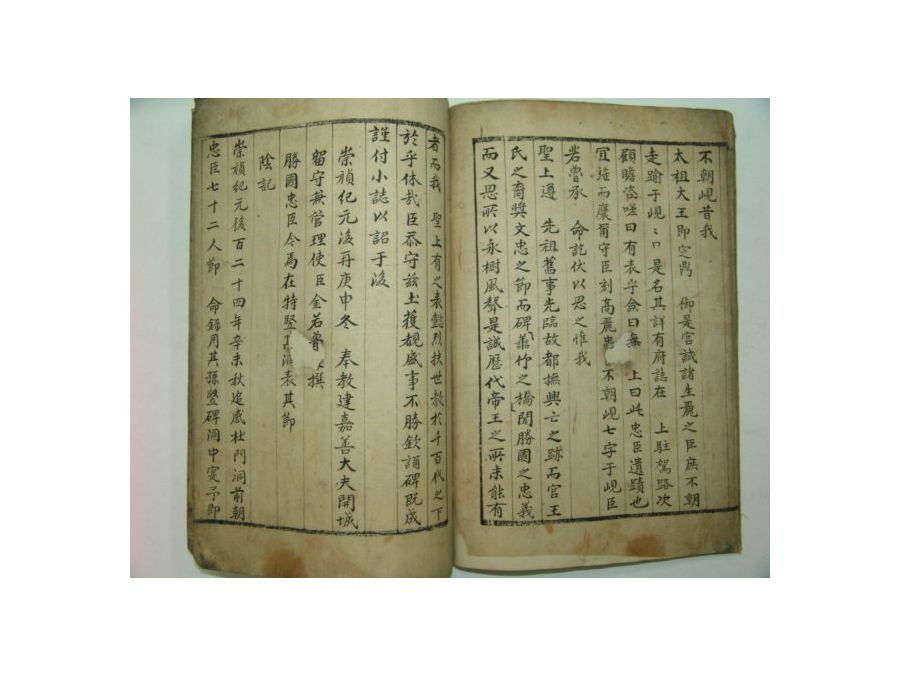 不朝峴昔我
太祖大王即定鼎 御是宮誠諸生麗之臣庶不朝
走踰于峴峴口是名其詳有府誌在 上駐駕路次
顧瞻咨嗟曰有表乎僉曰無 上曰此忠臣遺蹟也
宜旌而褒爾守臣刻高麗忠 不朝峴七字于峴臣
若魯承 命訖伏以思之惟我
聖上遵 先祖舊事先臨故都撫興亡之跡而官王
氏之裔獎文忠之節而碑善竹之橋聞勝國之忠義
而又思所以永樹風聲是誠歷代帝王之所未能有
者而我 聖上有之表懿烈扶世教於千百代之下
於乎休哉臣忝守茲土獲覩盛事不勝欽誦碑既成
謹付小誌以詔于後
崇禎紀元後再庚申冬 奉教建嘉善大夫開城
留守兼管理使臣金若魯 撰
勝國忠臣今焉在特竪其洞表其節
陰記
崇禎紀元後百二十四年辛未秋追感杜門洞前朝
忠臣七十二人節 命錄用其孫竪碑洞中寔予即